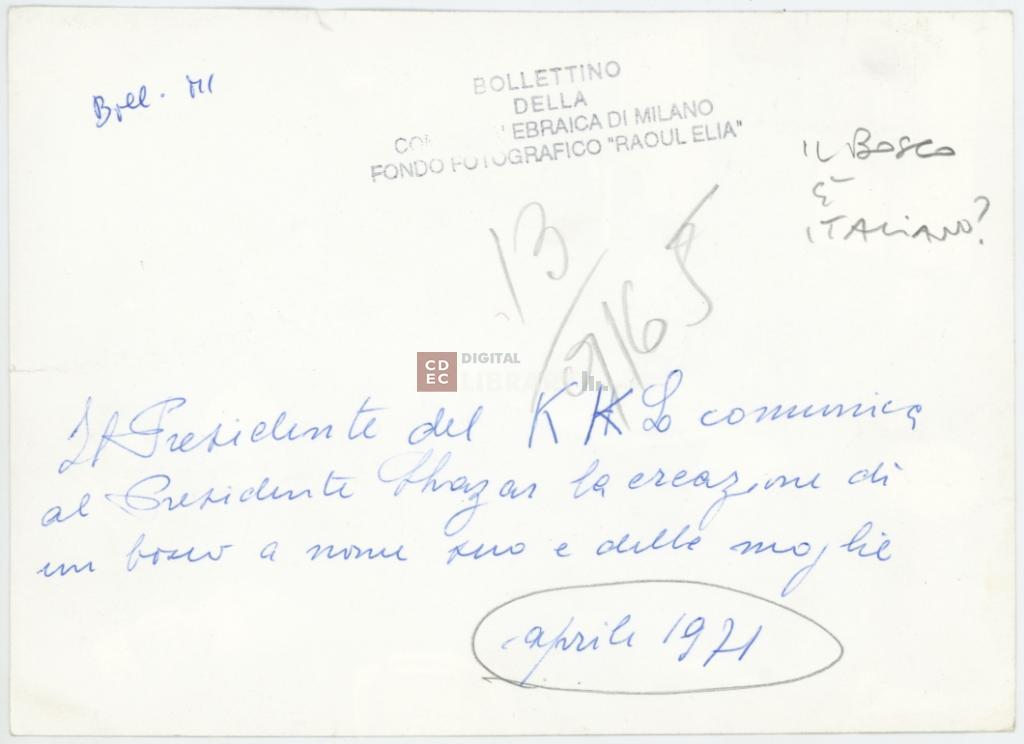 Boll. MI
BOLLETTINO
DELLA
EBRAICA DI MILANO
FONDO FOTOGRAFICO "RAOUL ELIA"
IL BOSCO
È
ITALIANO?
13
CDEC DIGITAL
LIBRARY
Il Presidente del KKL comunica
al Presidente Shazar la creazione di
un bosco a nome suo e della moglie
aprile 1971